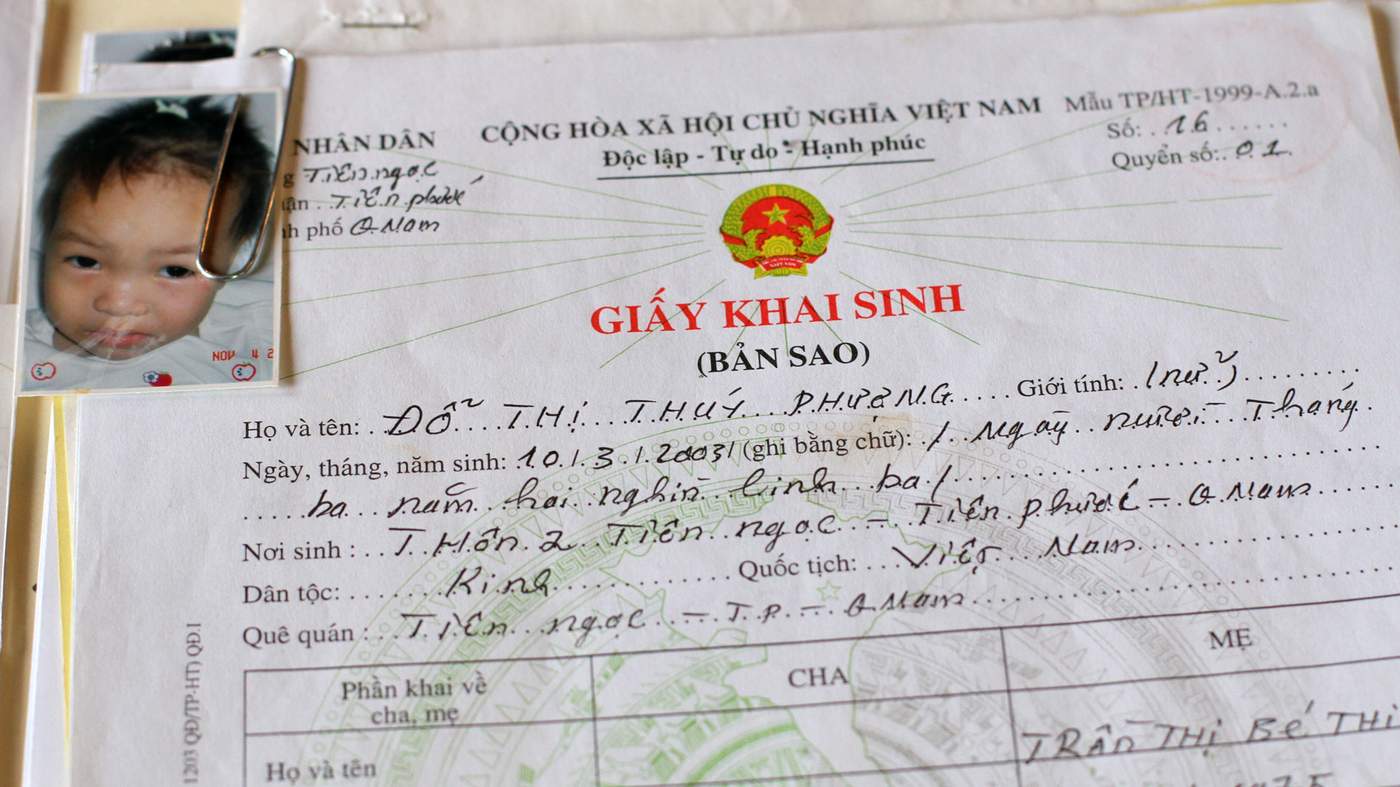 NHÂN DÂN
CỘNG HÒA XÃ HỘI CHỦ NGHĨA VIỆT NAM
Mẫu TP/HT-1999-A.2.a
Độc lập - Tự do - Hạnh phúc
Số: 16
Quyển số: 01
Tiên ngọc
Tiên phước
phố Q. Nam
GIẤY KHAI SINH
(BẢN SAO)
Họ và tên: ĐỖ THỊ THUÝ PHƯỢNG Giới tính: (nữ)
Ngày, tháng, năm sinh: 10/3/2003/ (ghi bằng chữ): / Ngày mười Tháng
ba năm hai nghìn linh ba/
Nơi sinh: Thôn 2 Tiên ngọc - Tiên phước - Q. Nam
Dân tộc: Kinh Quốc tịch: Việt Nam
Quê quán: Tiên ngọc - T.P - Q. Nam
Phần khai về cha, mẹ CHA MẸ
Họ và tên TRẦN THỊ BÉ THI
1975
NOV 4 2